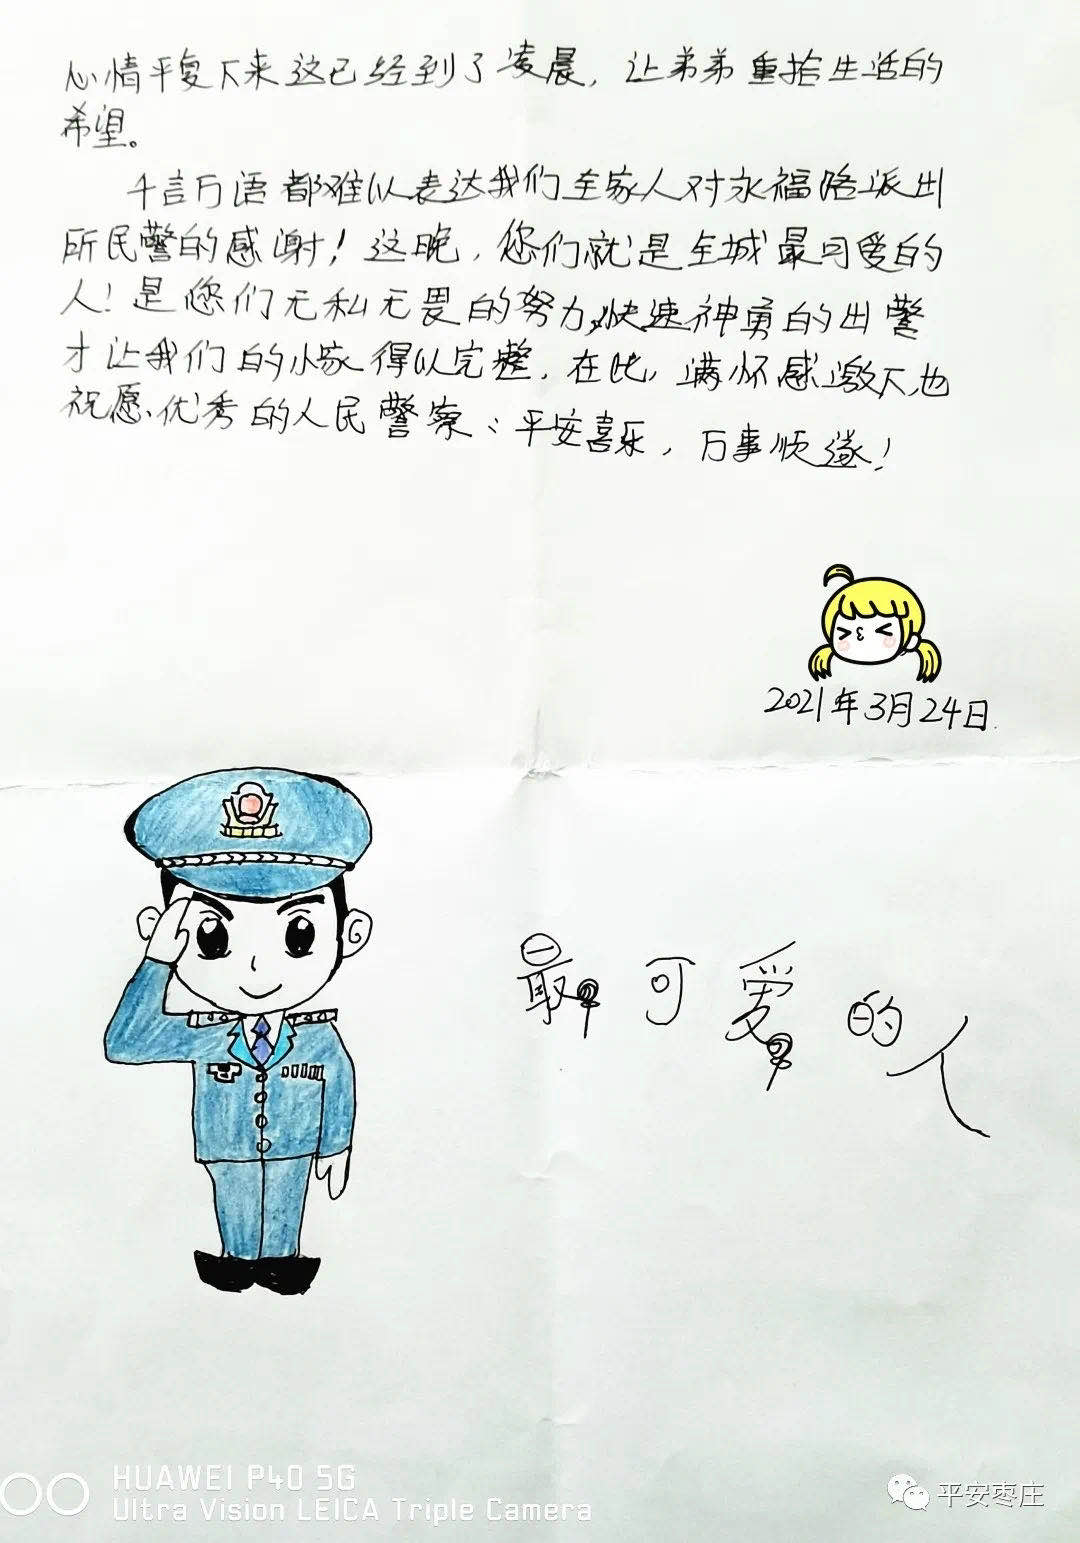 心情平复下来这已经到了凌晨，让弟弟重拾生活的
希望。
千言万语都难以表达我们全家人对永福路派出
所民警的感谢！这晚，您们就是全城最可爱的
人！是您们无私无畏的努力，快速神勇的出警
才让我们的小家得以完整，在此，满怀感激下也
祝愿优秀的人民警察：平安喜乐，万事顺遂！
2021年3月24日.
最可爱的人
HUAWEI P40 5G
Ultra Vision LEICA Triple Camera
平安枣庄